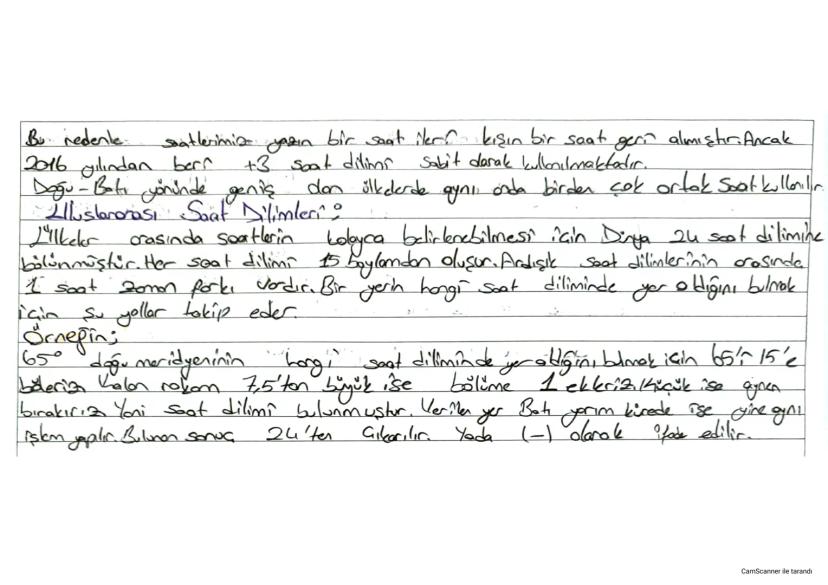 Bu nedenle saatlerimiz yazın bir saat ileri kışın bir saat geri alınmıştır. Ancak
2016 yılından beri +3 saat dilimi sabit olarak kullanılmaktadır.
Doğu-Batı yönünde geniş olan ülkelerde aynı anda birden çok ortak saat kullanılır.
Uluslararası Saat Dilimleri:
Ülkeler arasında saatlerin kolayca belirlenebilmesi için Dünya 24 saat dilimine
bölünmüştür. Her saat dilimi 15 boylamdan oluşur. Ardışık saat dilimlerinin arasında
1 saat zaman farkı vardır. Bir yerin hangi saat diliminde yer aldığını bulmak
için şu yollar takip eder.
Örneğin;
65° doğu meridyeninin hangi saat diliminde yer aldığını bulmak için 65'i 15'e
böleriz kalan rakam 7,5'ten büyük ise bölüme 1 ekleriz. Küçük ise aynen
bırakırız Yani saat dilimi bulunmuştur. Verilen yer Batı yarım kürede ise yine aynı
işlem yapılır. Bulunan sonuç 24'ten çıkarılır. Yada (-) olarak ifade edilir.
CamScanner ile tarandı